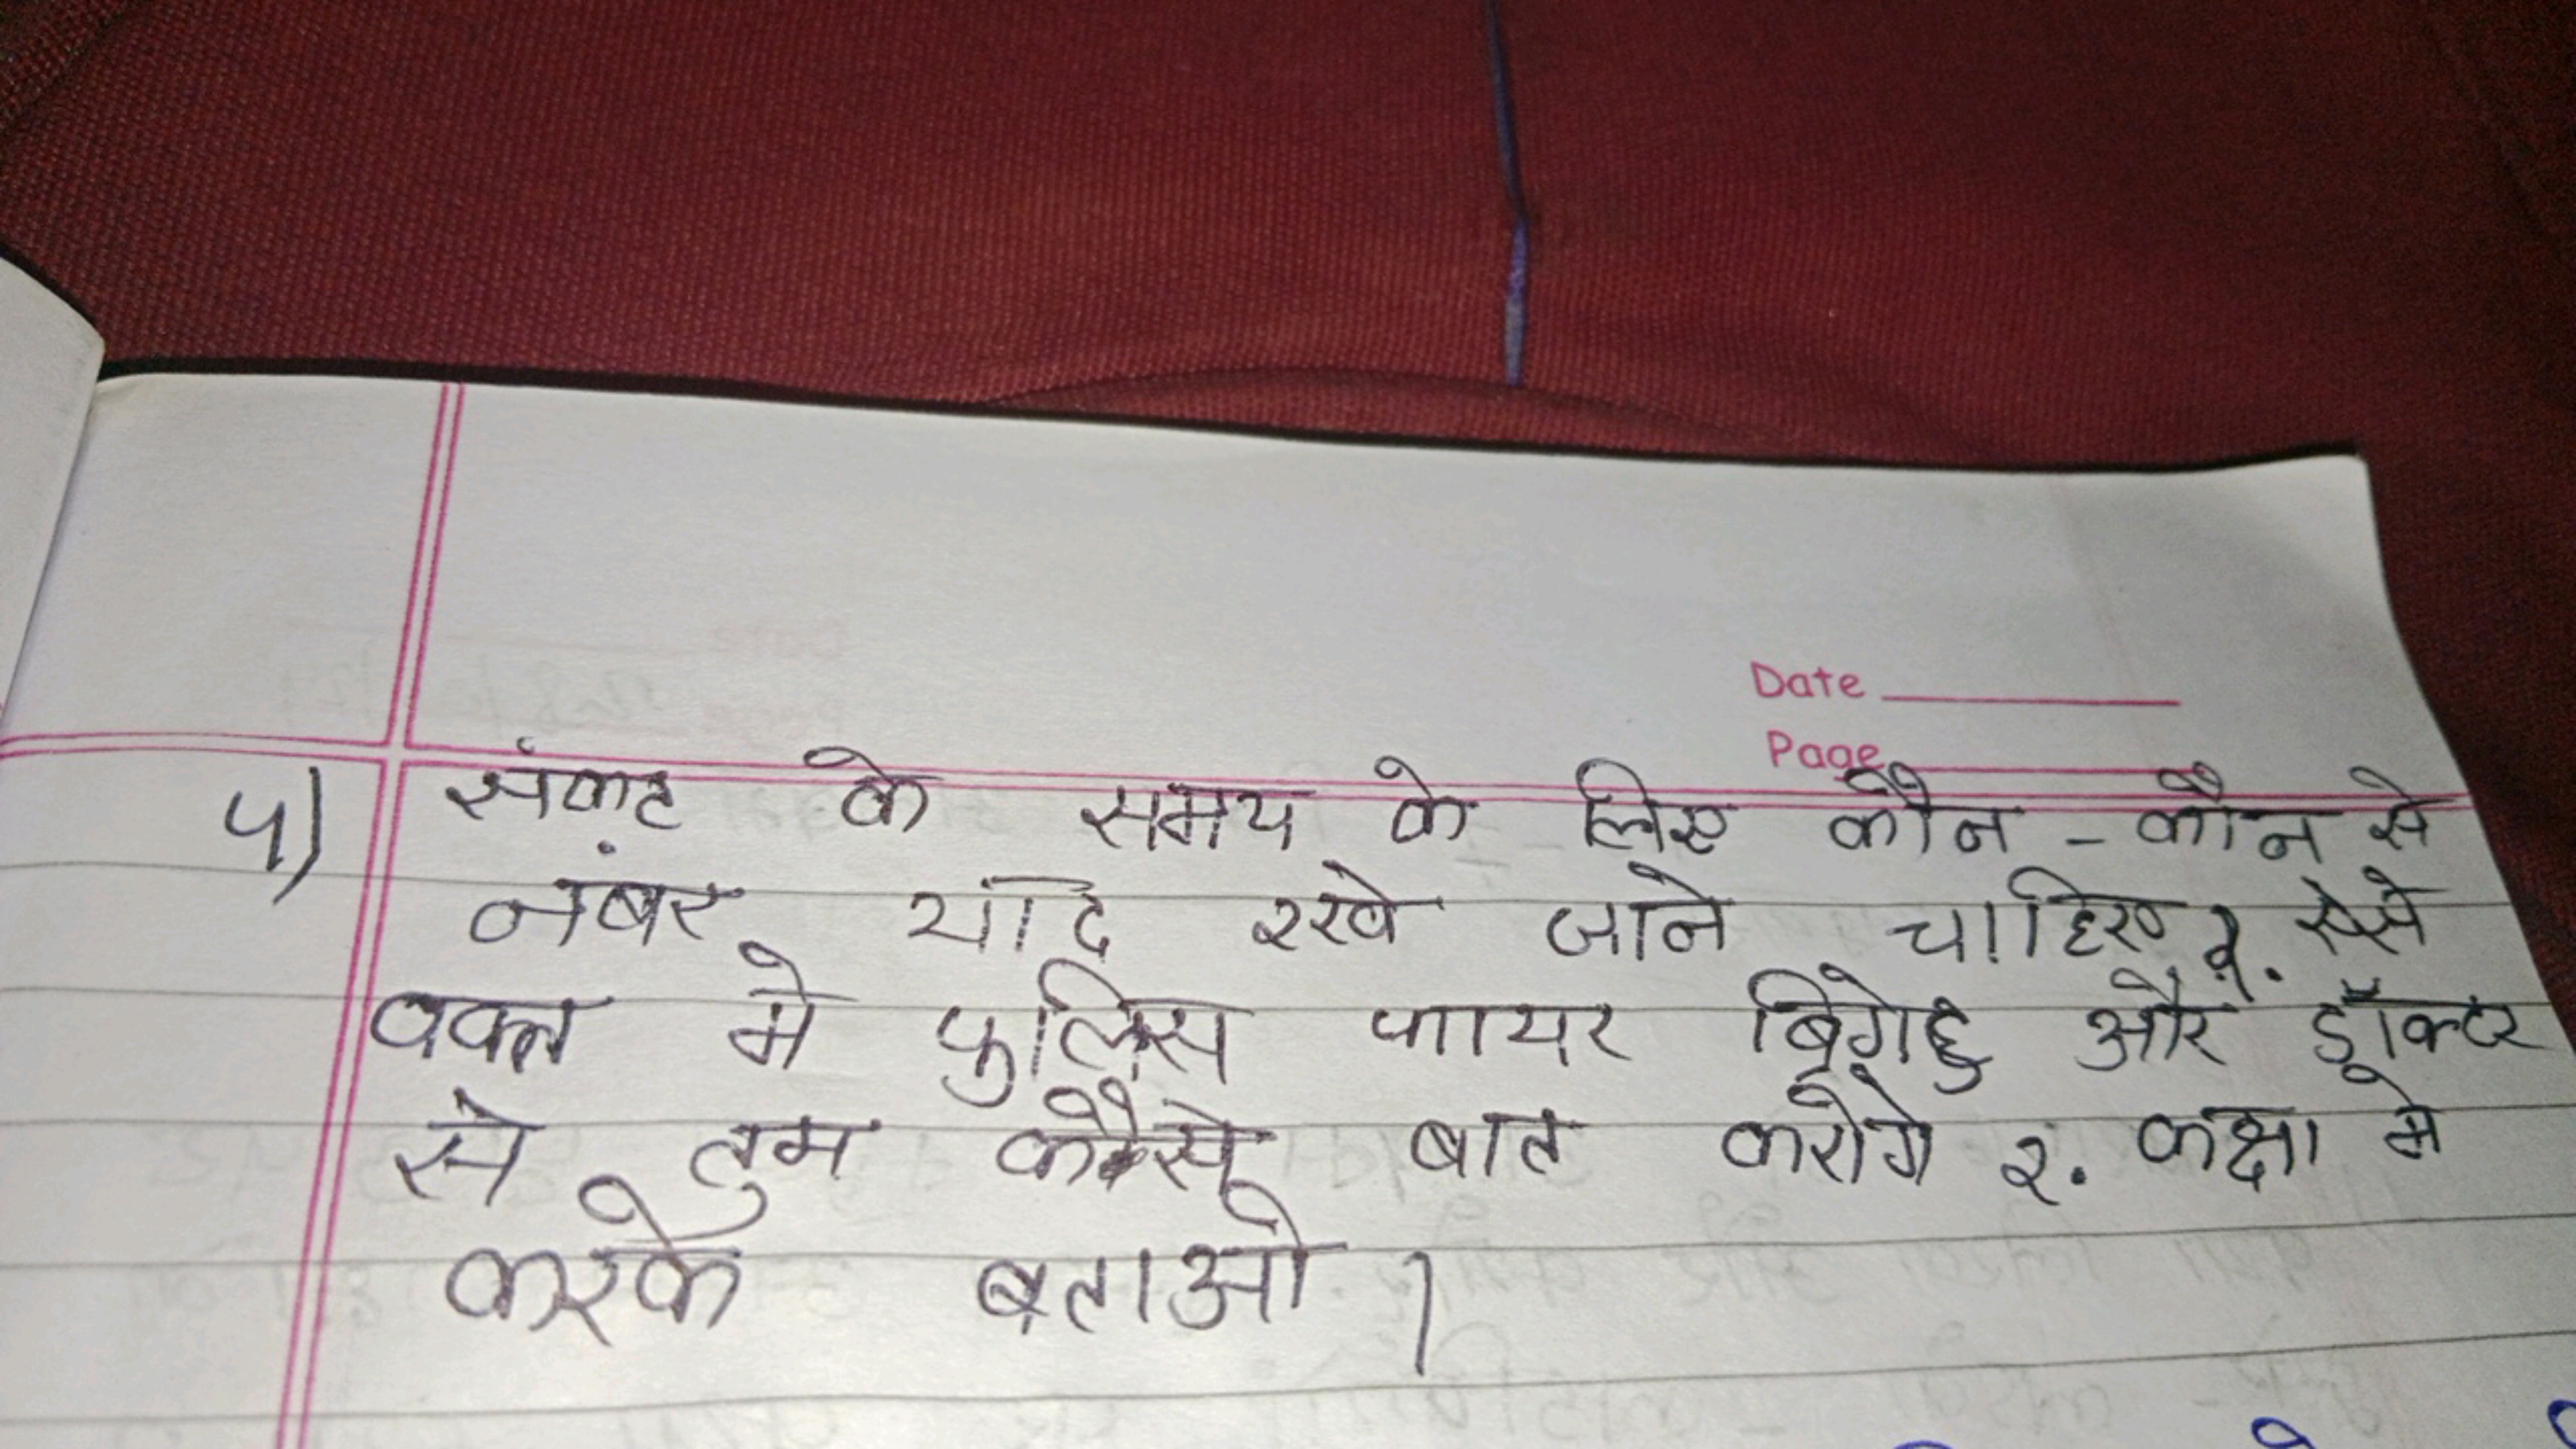 Date
Page
५) संकट के समय के लिए कौन - कौन से
नंबर याद रखे जाने चाहिए ?. ऐसे
वक्त मे पुलिस फायर ब्रिगेड और डॉक्टर
से तुम कैसे बात करोगे ?. कक्षा मे
करके बताओ ।